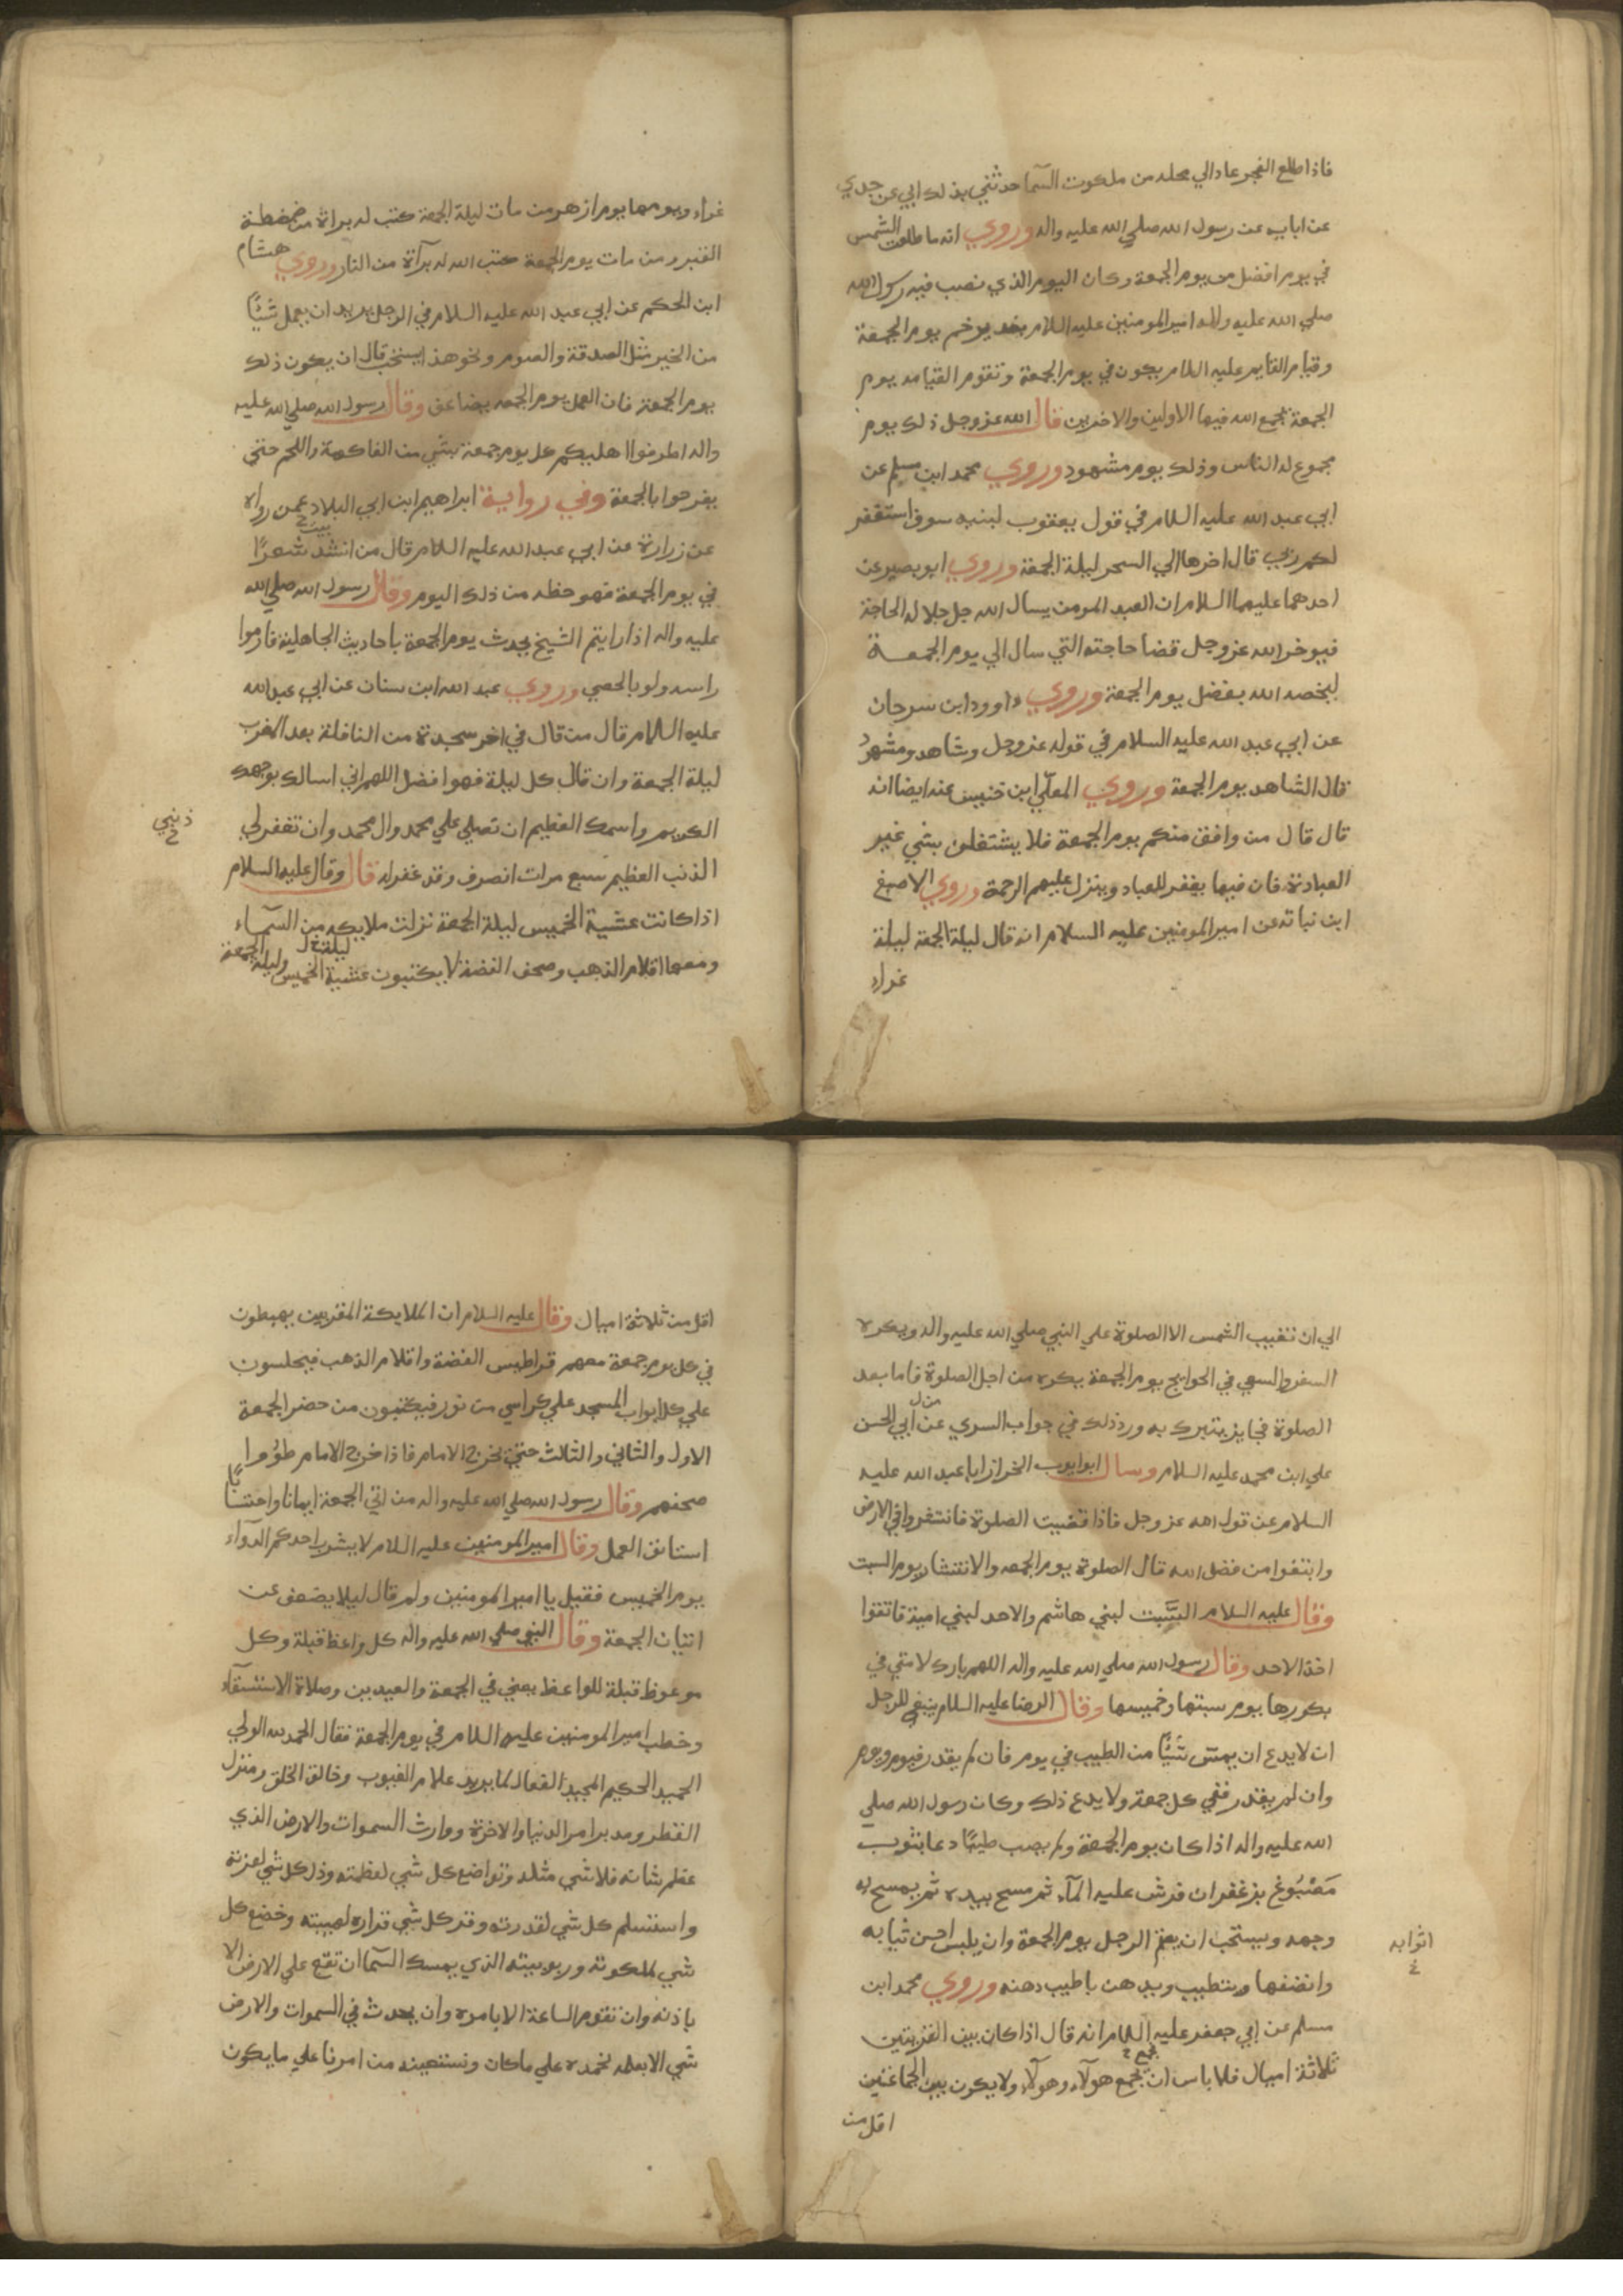 فاذا طلع الفجر عاد الي محله من ملكوت السمآ حدثني بذلك ابي عن جدي
عن ابايه عن رسول الله صلي الله عليه واله وروي انه ما طلعت الشمس
في يوم افضل من يوم الجمعة وكان اليوم الذي نصب فيه رسول الله
صلي الله عليه واله امير المومنين عليه السلام بغدير خم يوم الجمعة
وقيام القايم عليه السلام يكون في يوم الجمعة وتقوم القيامه يوم
الجمعة يجمع الله فيها الاولين والاخرين قال الله عز وجل ذلك يوم
مجموع له الناس وذلك يوم مشهود وروي محمد ابن مسلم عن
ابي عبد الله عليه السلام في قول يعقوب لبنيه سوف استغفر
لكم ربي قال اخرها الي السحر ليلة الجمعة وروي ابو بصير عن
احدهما عليهما السلام ان العبد المومن يسال الله جل جلاله الحاجة
فيوخر الله عز وجل قضا حاجته التي سال الي يوم الجمعة
ليخصه الله بفضل يوم الجمعة وروي داوود ابن سرحان
عن ابي عبد الله عليه السلام في قوله عز وجل وشاهد ومشهود
قال الشاهد يوم الجمعة وروي المعلي ابن خنيس عنه ايضا انه
قال قال من وافق منكم يوم الجمعة فلا يشتغلن بشي غير
العبادة فان فيها يغفر للعباد وينزل عليهم الرحمة وروي الاصبغ
ابن نباته عن امير المومنين عليه السلام انه قال ليلة الجمعة ليلة
غراء
غراء ويومها يوم ازهر من مات ليلة الجمعة كتب له براة من ضغطة
القبر ومن مات يوم الجمعة كتب الله له برآة من النار وروي هشام
ابن الحكم عن ابي عبد الله عليه السلام في الرجل يريد ان يعمل شيًا
من الخير مثل الصدقة والصوم ونحو هذا يستحب قال ان يكون ذلك
يوم الجمعة فان العمل يوم الجمعه يضاعف وقال رسول الله صلي الله عليه
واله اطرفوا اهليكم كل يوم جمعة بشي من الفاكهة واللحم حتي
يفرحوا بالجمعة وفي رواية ابراهيم ابن ابي البلاد عمن رواه
بيت
عن زرارة عن ابي عبد الله عليه السلام قال من انشد شعرًا
في يوم الجمعة فهو حظه من ذلك اليوم وقال رسول الله صلي الله
عليه واله اذا رايتم الشيخ يحدث يوم الجمعة باحاديث الجاهلية فارموا
راسه ولو بالحصي وروي عبد الله ابن سنان عن ابي عبد الله
عليه السلام قال من قال في اخر سجدة من النافلة بعد المغرب
ليلة الجمعة وان قال كل ليلة فهو افضل اللهم اني اسالك بوجهك
الكريم واسمك العظيم ان تصلي علي محمد وال محمد وان تغفر لي
ذنبي
الذنب العظيم سبع مرات انصرف وقد غفر له قال وقال عليه السلام
اذا كانت عشية الخميس ليلة الجمعة نزلت ملايكه من السمآء
ومعها اقلام الذهب وصحف الفضة لا يكتبون عشية الخميس وليلة الجمعة
الي ان تغيب الشمس الا الصلوة علي النبي صلي الله عليه واله ويكره
السفر والسعي في الحوايج يوم الجمعة يكره من اجل الصلوة فاما بعد
الصلوة فجايز يتبرك به ورد ذلك في جواب السري عن ابي الحسن
علي ابن محمد عليه السلام وسال ابو ايوب الخزاز ابا عبد الله عليه
السلام عن قول الله عز وجل فاذا قضيت الصلوة فانتشروا في الارض
وابتغوا من فضل الله قال الصلوة يوم الجمعه والانتشار يوم السبت
وقال عليه السلام السَّبت لبني هاشم والاحد لبني امية فاتقوا
اخذ الاحد وقال رسول الله صلي الله عليه واله اللهم بارك لامتي في
بكورها يوم سبتها وخميسها وقال الرضا عليه السلام ينبغي للرجل
ان لا يدع ان يمس شيًا من الطيب في يوم فان لم يقدر فيوم ويوم
وان لم يقدر ففي كل جمعة ولا يدع ذلك وكان رسول الله صلي
الله عليه واله اذا كان يوم الجمعة ولم يصب طيبًا دعا بثوب
مَصْبُوغ بزعفران فرش عليه المآء ثم مسح بيده ثم يمسح به
وجهه ويستحب ان يعتم الرجل يوم الجمعة وان يلبس احسن ثيابه
اثوابه
وانضفها ويتطيب ويدهن باطيب دهنه وروي محمد ابن
مسلم عن ابي جعفر عليه السلام انه قال اذا كان بين القريتين
ثلاثة اميال فلا باس ان يجمع هولآء وهولآء ولا يكون بين الجماعتين
اقل من
اقل من ثلاثة اميال وقال عليه السلام ان الملايكة المقربين يهبطون
في كل يوم جمعة معهم قراطيس الفضة واقلام الذهب فيجلسون
علي كل ابواب المسجد علي كراسي من نور فيكتبون من حضر الجمعة
الاول والثاني والثالث حتي يخرج الامام فاذا خرج الامام طووا
صحفهم وقال رسول الله صلي الله عليه واله من اتي الجمعة ايمانا واحتسابًا
استانف العمل وقال امير المومنين عليه السلام لا يشرب احدكم الدوآء
يوم الخميس فقيل يا امير المومنين ولم قال ليلا يضعف عن
اتيان الجمعة وقال النبي صلي الله عليه واله كل واعظ قبلة وكل
موعوظ قبلة للواعظ يعني في الجمعة والعيدين وصلاة الاستسقآء
وخطب امير المومنين عليه السلام في يوم الجمعة فقال الحمد لله الولي
الحميد الحكيم المجيد الفعال لما يريد علام الغيوب وخالق الخلق ومنزل
القطر ومدبر امر الدنيا والاخرة ووارث السموات والارض الذي
عظم شانه فلا شي مثله وتواضع كل شي لعظمته وذل كل شي لعزته
واستسلم كل شي لقدرته وقر كل شي قراره لهيبته وخضع كل
شي لملكوته وربوبيته الذي يمسك السمآ ان تقع علي الارض الا
باذنه وان تقوم الساعة الا بامره وان يحدث في السموات والارض
شي الا بعلمه نحمده علي ماكان ونستعينه من امرنا علي ما يكون